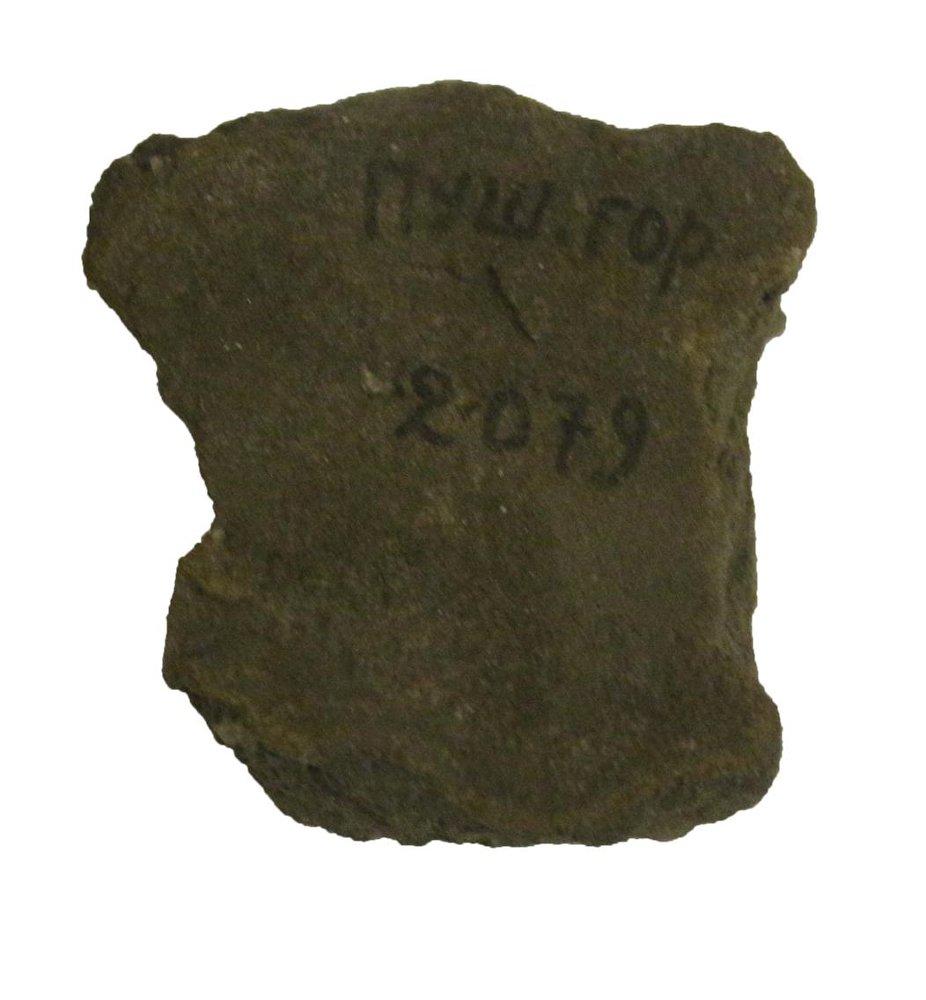 Пуш.гор
2079